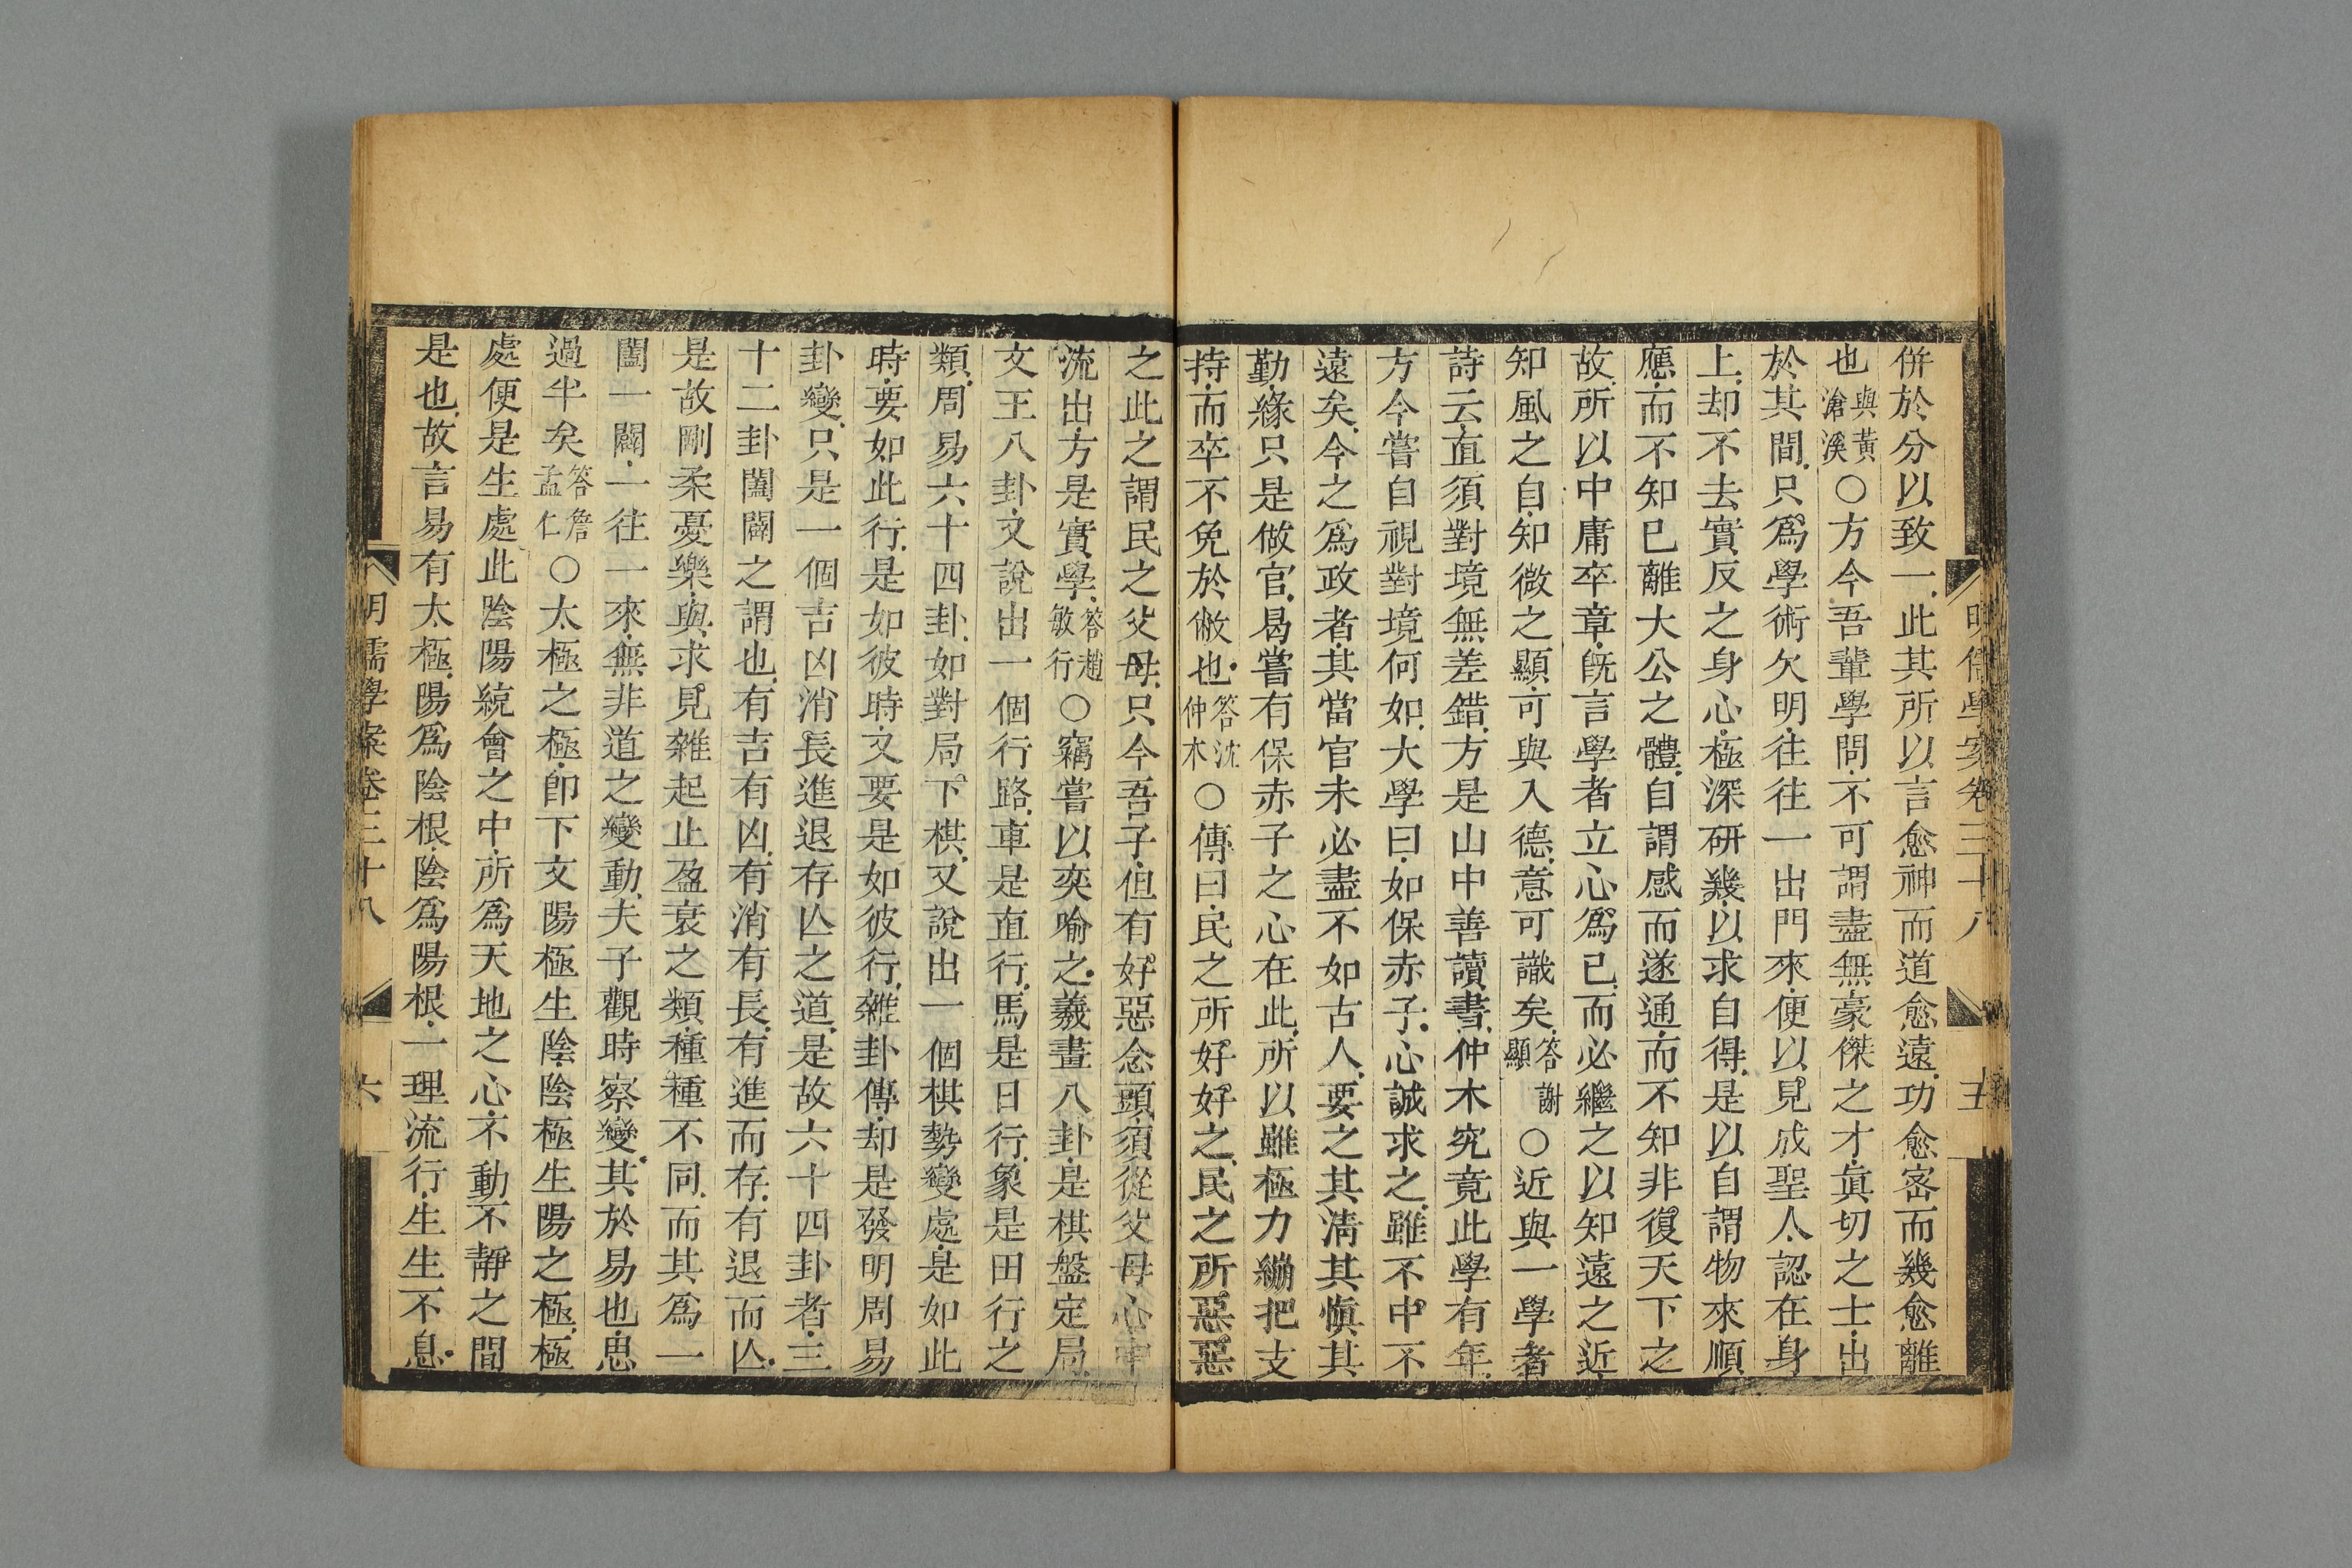 明儒學案卷三十八
五
併於分以致一此其所以言愈神而道愈遠功愈密而幾愈離
也與黃滄溪○方今吾輩學問不可謂盡無豪傑之才眞切之士出
於其間只爲學術欠明往往一出門來便以見成聖人認在身
上却不去實反之身心極深研幾以求自得是以自謂物來順
應而不知已離大公之體自謂感而遂通而不知非復天下之
故所以中庸卒章旣言學者立心爲己而必繼之以知遠之近
知風之自知微之顯可與入德意可識矣答謝顯○近與一學者
詩云直須對境無差錯方是山中善讀書仲木究竟此學有年
方今嘗自視對境何如大學曰如保赤子心誠求之雖不中不
遠矣今之爲政者其當官未必盡不如古人要之其淸其愼其
勤緣只是做官曷嘗有保赤子之心在此所以雖極力繃把支
持而卒不免於敝也答沈仲木○傳曰民之所好好之民之所惡惡
之此之謂民之父母只今吾子但有好惡念頭須從父母心中
流出方是實學答趙敏行○竊嘗以奕喻之羲畫八卦是棋盤定局
文王八卦又說出一個行路車是直行馬是日行象是田行之
類周易六十四卦如對局下棋又說出一個棋勢變處是如此
時要如此行是如彼時又要是如彼行雜卦傳却是發明周易
卦變只是一個吉凶消長進退存亾之道是故六十四卦者三
十二卦闔闢之謂也有吉有凶有消有長有進而存有退而亾
是故剛柔憂樂與求見雜起止盈衰之類種種不同而其爲一
闔一闢一往一來無非道之變動夫子觀時察變其於易也思
過半矣答詹孟仁○太極之極卽下文陽極生陰陰極生陽之極極
處便是生處此陰陽統會之中所爲天地之心不動不靜之間
是也故言易有太極陽爲陰根陰爲陽根一理流行生生不息
明儒學案卷三十八
六